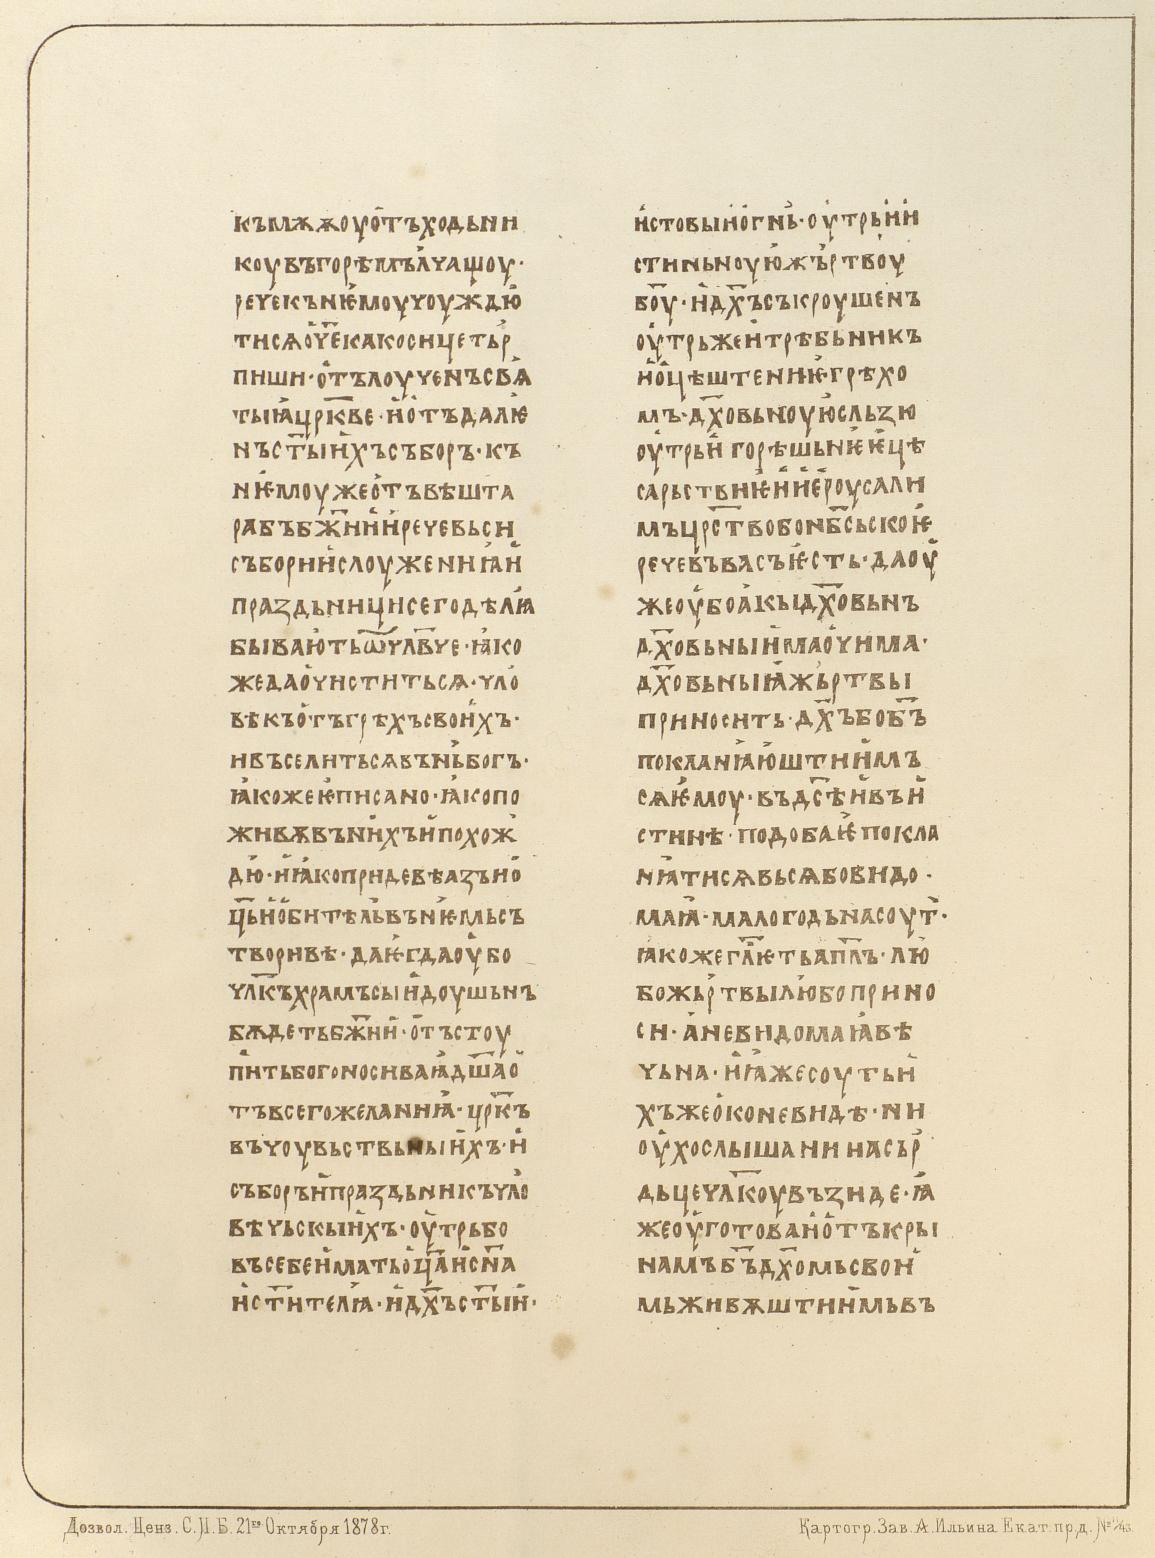 къ мѫжоу отъходьни
коу въ горѣ мълчащоу·
рече къ н҄ѥмоу чоуждю
тисѧ о҃че како сице тьр
пиши· отълоученъ свѧ
тыꙗ цр҃кве· и отъ далѥ
нъ ст҃ыихъ съборъ· къ
нѥмоу же отъвѣшта
рабъ бж҃ии и рече вьси
събори и слоужениꙗ и
праздьници сего дѣлꙗ
бываѭть ѿ чл҃вче· ꙗко
же да очиститьсѧ· чло
вѣкъ отъ грѣхъ своихъ·
и въселитьсѧ въ нь богъ·
ꙗкоже ѥ писано· ꙗко по
живѫ въ нихъ и похож
дю· и ꙗко придевѣ азъ и о
ц҃ь и обитѣль въ нѥмь съ
творивѣ· да ѥгда оубо
чл҃къ храмъ сы и доушьнъ
бѫдеть бж҃ии· отъстоу
пить богоносиваꙗ дш҃а о
тъ всего желаниꙗ· цр҃къ
въчоувьствьныихъ· и
съборъ и праздьникъ чло
вѣчьскыихъ· оутрь бо
въ себе имать оц҃а и сн҃а
ист҃ителꙗ· и дх҃ъ ст҃ыи·
истовыи огнь· оутрьии
стиньноую жьртвоу
боу҃· и дх҃ъ съкроушенъ
оутрь же и трѣбьникъ
и оцѣштениѥ грѣхо
мъ· дх҃овьноую сльзю
оутрьи горѣшьнѥѥ цѣ
сарьствиѥ и иероусали
мъ цр҃ство бо нб҃сьскоѥ
рече въ васъ ѥсть· да оу
же оубо акы дх҃овьнъ
дх҃овьныима очима·
дх҃овьныꙗ жьртвы
приносить· дх҃ъ бо б҃ъ
покланꙗюштиимъ
сѧ ѥмоу· въ дс҃ѣ и въ и
стинѣ· подобаѥ покла
нꙗтисѧ вьсѧ бо видо·
маꙗ· мало годьна соут·
ꙗкоже гл҃ѥть ап҃лъ· лю
бо жьртвы любо прино
си· а невидомаꙗ вѣ
чьна· и ꙗже соуть и
хъже око не видѣ· ни
оухо слыша ни на сьр
дьце чл҃коу възиде· ꙗ
же оуготова и отъкры
намъ б҃ъ дх҃омь свои
мь живѫштиимь въ
Дозвол. Ценз. С.П.Б. 21го Октября 1878г.
Картогр. Зав. А. Ильина Екат. пр. д.